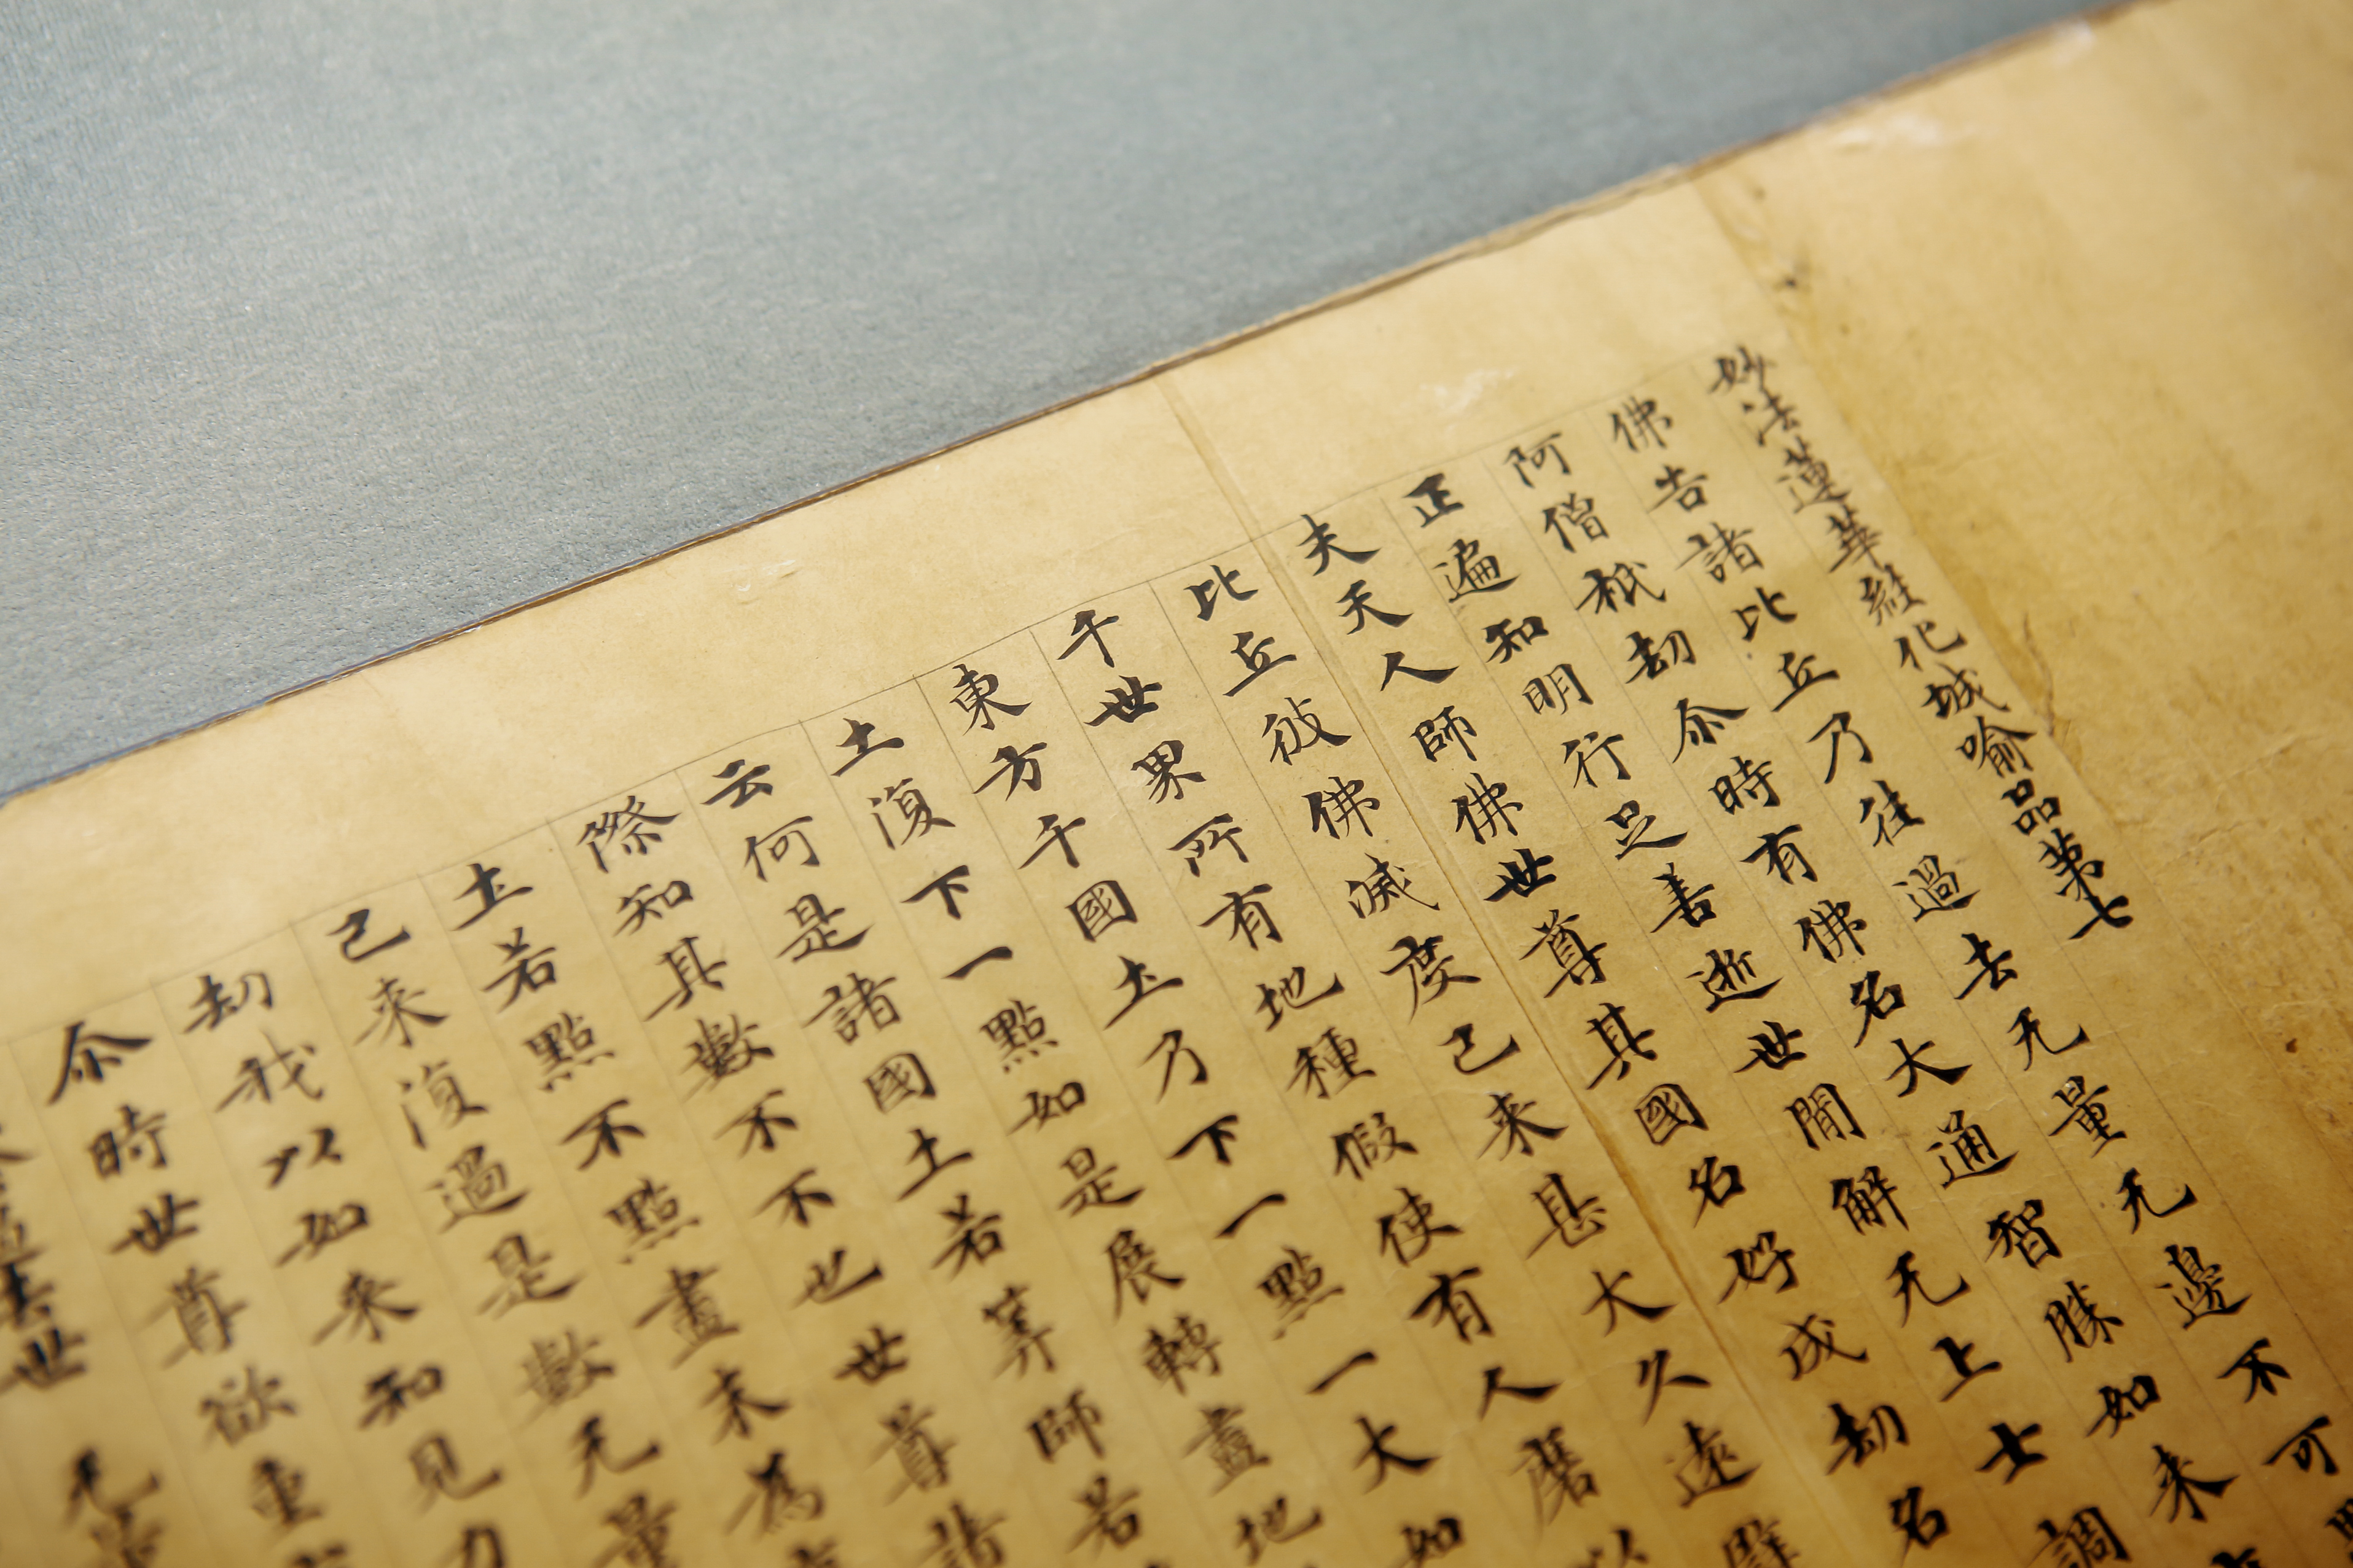 妙法蓮華經化城喻品第七
佛告諸比丘乃往過去无量无邊不可
阿僧祇劫尒時有佛名大通智勝如来
正遍知明行足善逝世閒解无上士調
夫天人師佛世尊其國名好成劫名
比丘彼佛滅度已来甚大久遠譬
千世界所有地種假使有人磨以
東方千國土乃下一點一大如
土復下一點如是展轉盡地
云何是諸國土若筭師若
際知其數不不也世尊諸
土若點不點盡末為
已来復過是數无量
劫我以如来知見力
尒時世尊欲重
過去世 无量